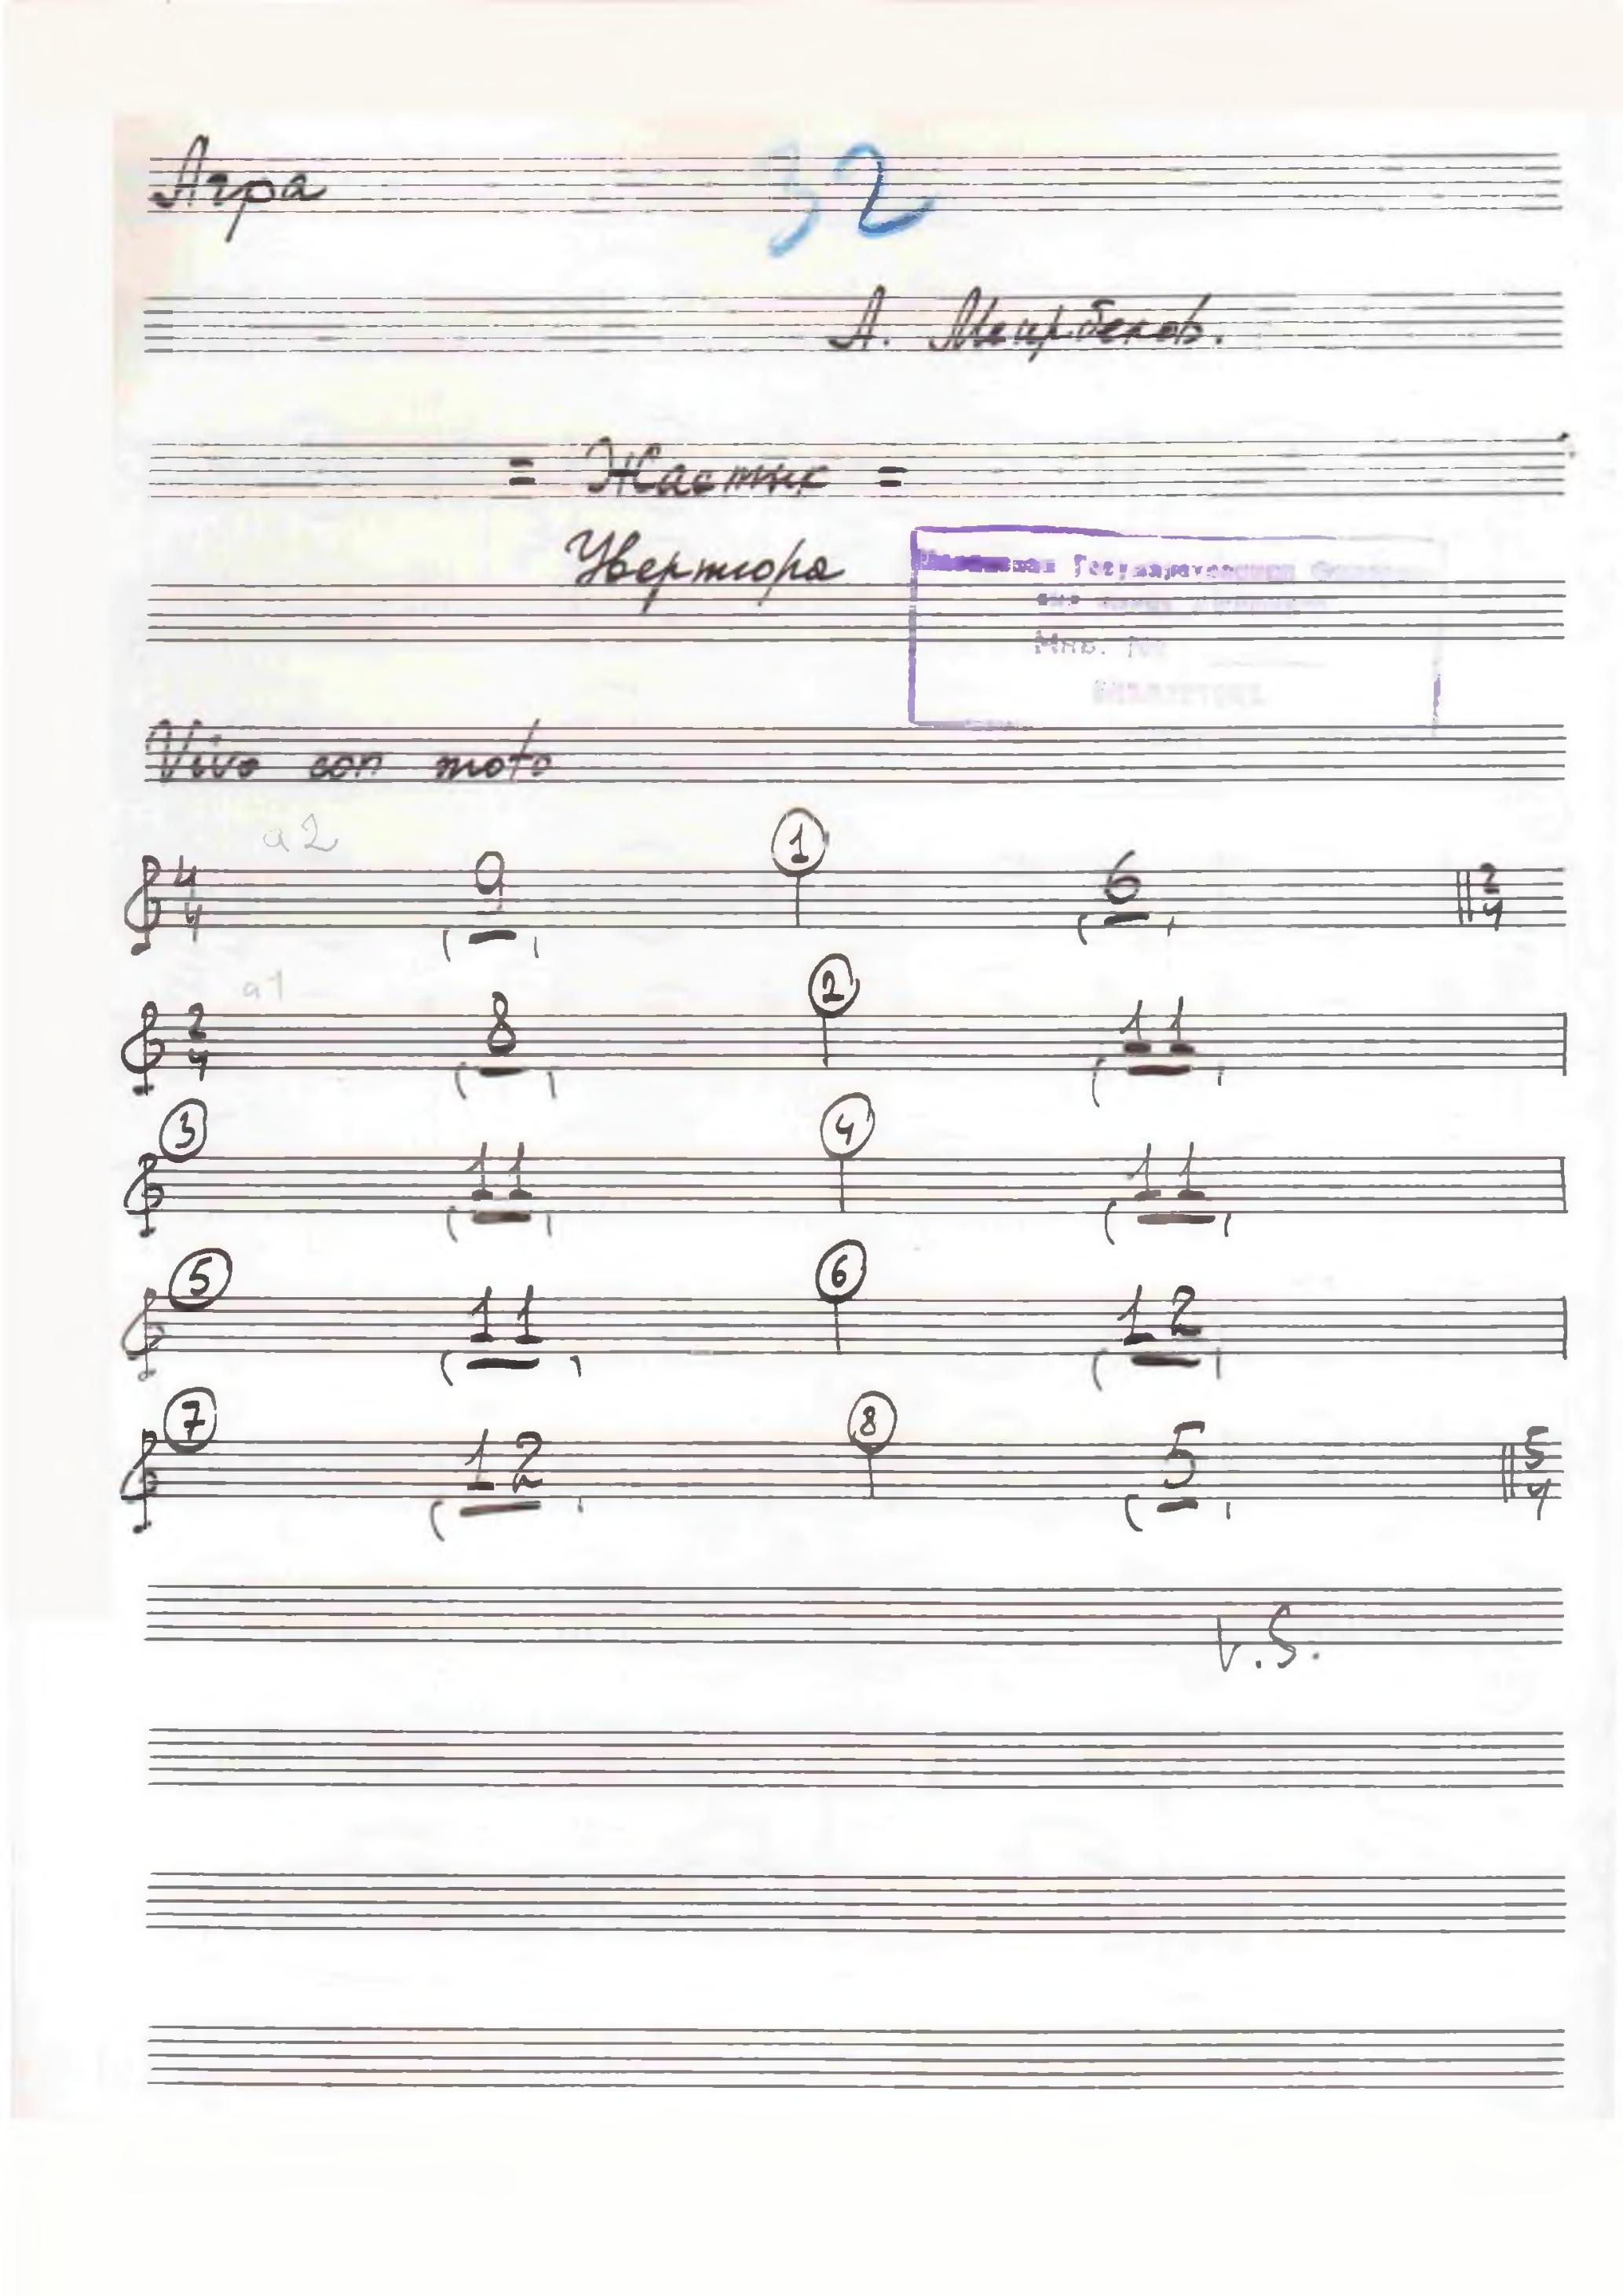 Арра 32
А. Меирбеков.
= Жастик =
Увертюра
Государственная
Инв. №
БИБЛИОТЕКА
Vivo con moto
a2
4 4 9 1 6 2 4
a1
2 4 8 2 11
3 11 4 11
5 11 6 12
7 12 8 5 5 4
V.S.